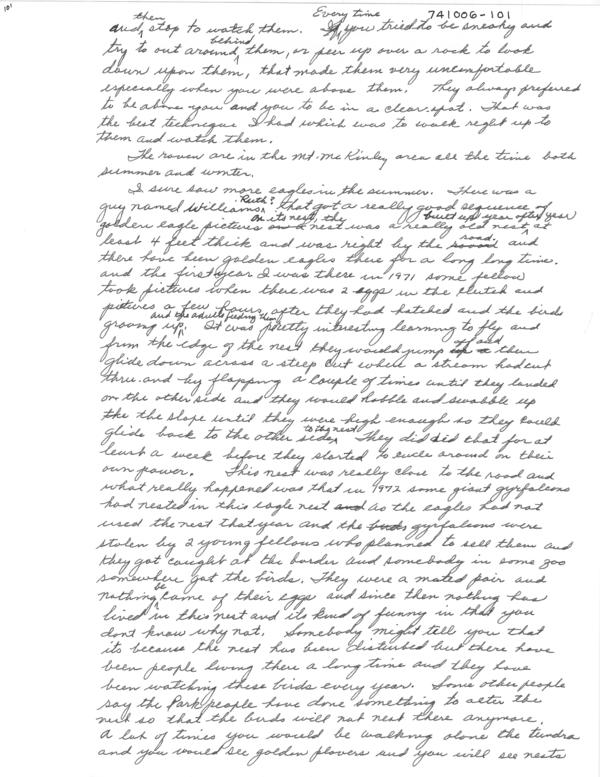 101
741006-101
and then stop to watch them. Every time you tried to be sneaky and
try to out around behind them, or peer up over a rock to look
down upon them, that made them very uncomfortable
especially when you were above them. They always preferred
to be above you and you to be in a clear spot. That was
the best technique I had which was to walk right up to
them and watch them.
The raven are in the Mt. McKinley area all the time both
summer and winter.
I sure saw more eagles in the summer. There was a
guy named Williams, Ruth? that got a really good sequence of
golden eagle pictures on its nest, the nest was a really old nest, built up year after year at
least 4 feet thick and was right by the road and
there have been golden eagles there for a long long time.
and the first year I was there in 1971 some fellow
took pictures when there was 2 eggs in the clutch and
pictures a few hours after they had hatched and the birds
growing up and the adults feeding them. It was pretty interesting learning to fly and
from the edge of the nest they would jump off and then
glide down across a steep cut when a stream had cut
thru and by flapping a couple of times until they landed
on the other side and they would hobble and swabble up
the the slope until they were high enough so they could
glide back to the other side to the nest. They did did that for at
least a week before they started to circle around on their
own power. This nest was really close to the road and
what really happened was that in 1972 some giant gyrfalcons
had nested in this eagle nest as the eagles had not
used the nest that year and the gyrfalcons were
stolen by 2 young fellows who planned to sell them and
they got caught at the border and somebody in some zoo
somewhere got the birds. They were a mated pair and
nothing became of their eggs and since then nothing has
lived in this nest and its kind of funny in that you
dont know why not. Somebody might tell you that
its because the nest has been disturbed but there have
been people living there a long time and they have
been watching these birds every year. Some other people
say the Park people have done something to alter the
nest so that the birds will not nest there anymore.
A lot of times you would be walking alone the tundra
and you would see golden plovers and you will see nests